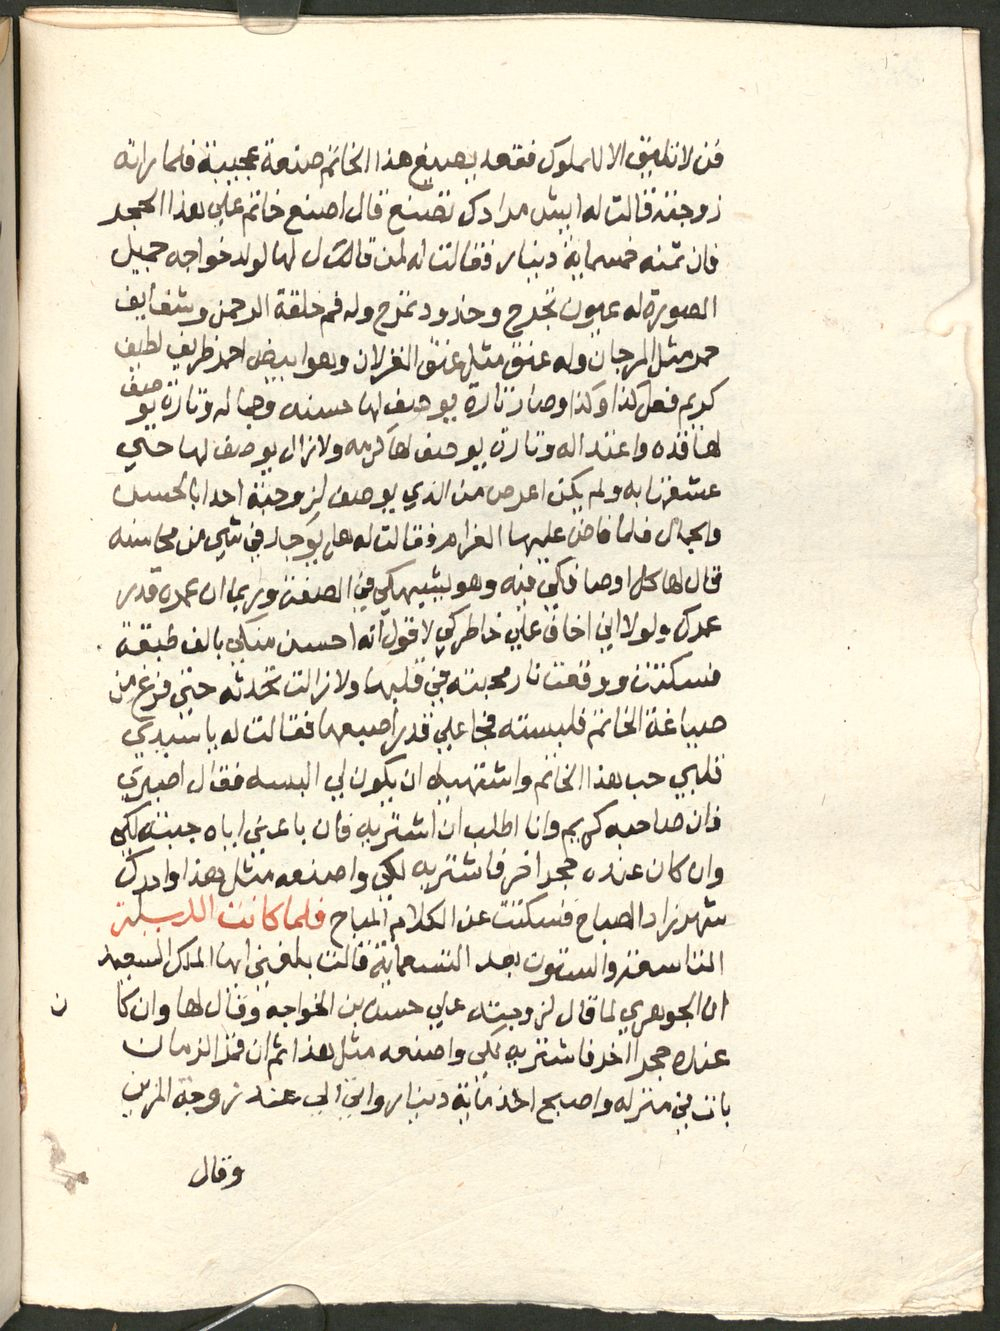 فن لا تليق الا للملوك فقعد يصيغ هذا الخاتم صنعة عجيبة فلما راته
زوجته قالت له ايش مرادك تصنع قال اصنع خاتم علي هذا الحجر
فان ثمنه خمسماية دينار فقالت له لمن قالت ل لها لولد خواجه جميل
الصورة له عيون تجرح وخدود تقدح وله فم خلقة الرحمن وشفايف
حمر مثل المرجان وله عنق مثل عنق الغزلان وهو ابيض احمر ظريف لطيف
كريم فعل كذا وكذا وصار تارة يوصف لها حسنه وجماله وتارة يوصف
لها قده واعتداله وتارة يوصف لها كرمه ولا زال يوصف لها حتي
عشقها به ولم يكن اعرص من الذي يوصف لزوجته احدا بالحسن
والجمال فلما فاض عليها الغرام فقالت له هل يوجد في شي من محاسنه
قال لها كل اوصافكي فيه وهو يشبهكي في الصفة وربما ان عمره قدر
عمرك ولولا اني اخاف علي خاطركي لاقول انه احسن منكي بالف طبقة
فسكتت ووقعت نار محبته في قلبها ولا زالت تحدثه حتى فرغ من
صياغة الخاتم فلبسته فجا علي قدر اصبعها فقالت له يا سيدي
قلبي حب هذا الخاتم واشتهيه ان يكون لي البسه فقال اصبري
فان صاحبه كريم وانا اطلب ان اشتريه فان باعني اياه جبته لكي
وان كان عنده حجر اخر فاشتريه لكي واصنعه مثل هذا وادرك
شهرزاد الصباح فسكتت عن الكلام المباح فلما كانت الليلة
التاسعة والستون بعد التسعماية قالت بلغني ايها الملك السعيد
ان الجوهري لما قال لزوجته علي حسن بن الخواجه وقال لها وان كان
عنده حجر اخر فاشتريه لكي واصنعه مثل هذا ثم ان قمر الزمان
بات في منزله واصبح اخذ ماية دينار واتي الي عند زوجة المزين
وقال